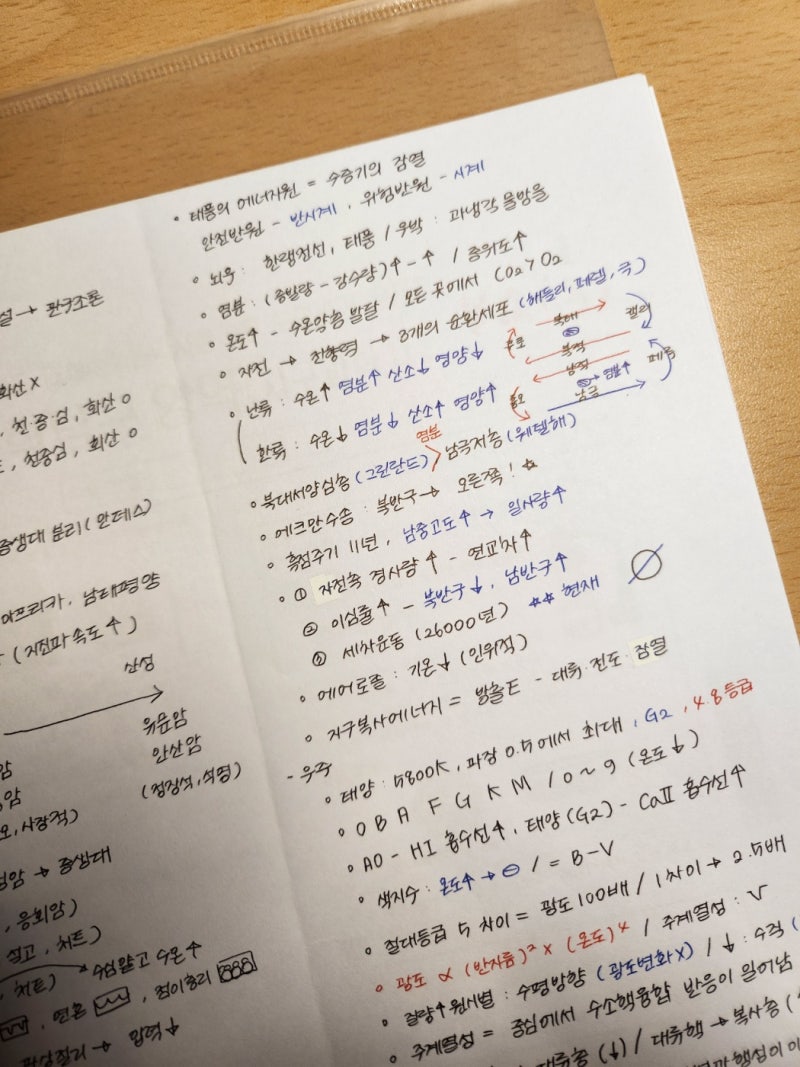 설 → 판구조론
화산 X
, 천·중·심, 화산 O
, 천중심, 화산 O
중생대 분리 (안데스)
아프리카, 남태평양
(지진파 속도↑)
산성
유문암
안산암
(정장석, 석영)
암 → 중생대
, 응회암)
, 처트)
수심 얕고 수온↑
, 연흔, 점이층리
→ 압력↓
• 태풍의 에너지원 = 수증기의 잠열
안전반원 - 반시계, 위험반원 - 시계
• 뇌우 : 한랭전선, 태풍 / 우박 : 과냉각 물방울
• 염분 : (증발량 - 강수량)↑ - ↑ / 중위도↑
• 온도↑ - 수온약층 발달 / 모든 곳에서 CO2 > O2
• 자전 → 전향력 → 3개의 순환세포 (해들리, 페렐, 극)
• 난류 : 수온↑ 염분↑ 산소↓ 영양↓
한류 : 수온↓ 염분↓ 산소↑ 영양↑
북태
북적
남적
페루
염분
• 북대서양심층 (그린란드) > 남극저층 (웨델해)
• 에크만수송 : 북반구 → 오른쪽! ☆
• 흑점주기 11년, 남중고도↑ → 일사량↑
• ① 자전축 경사량↑ - 연교차↑
② 이심률↑ - 북반구↓, 남반구↑
③ 세차운동 (26000년) ☆☆ 현재
• 에어로졸 : 기온↓ (인위적)
• 지구복사에너지 = 방출E - 대류·전도·잠열
- 우주
• 태양 : 5800K, 파장 0.5에서 최대, G2, 4.8등급
• O B A F G K M / 0 ~ 9 (온도↓)
• A0 - HI 흡수선↑, 태양(G2) - CaII 흡수선↑
• 색지수 : 온도↑ → ⊖ / = B-V
• 절대등급 5 차이 = 광도 100배 / 1차이 → 2.5배
• 광도 ∝ (반지름)² × (온도)⁴ / 주계열성 : V
• 질량↑ 원시별 : 수평방향 (광도변화X) / ↓ : 수직 (
• 주계열성 = 중심에서 수소핵융합 반응이 일어남
대류층 (↓) / 대류핵 → 복사층 (